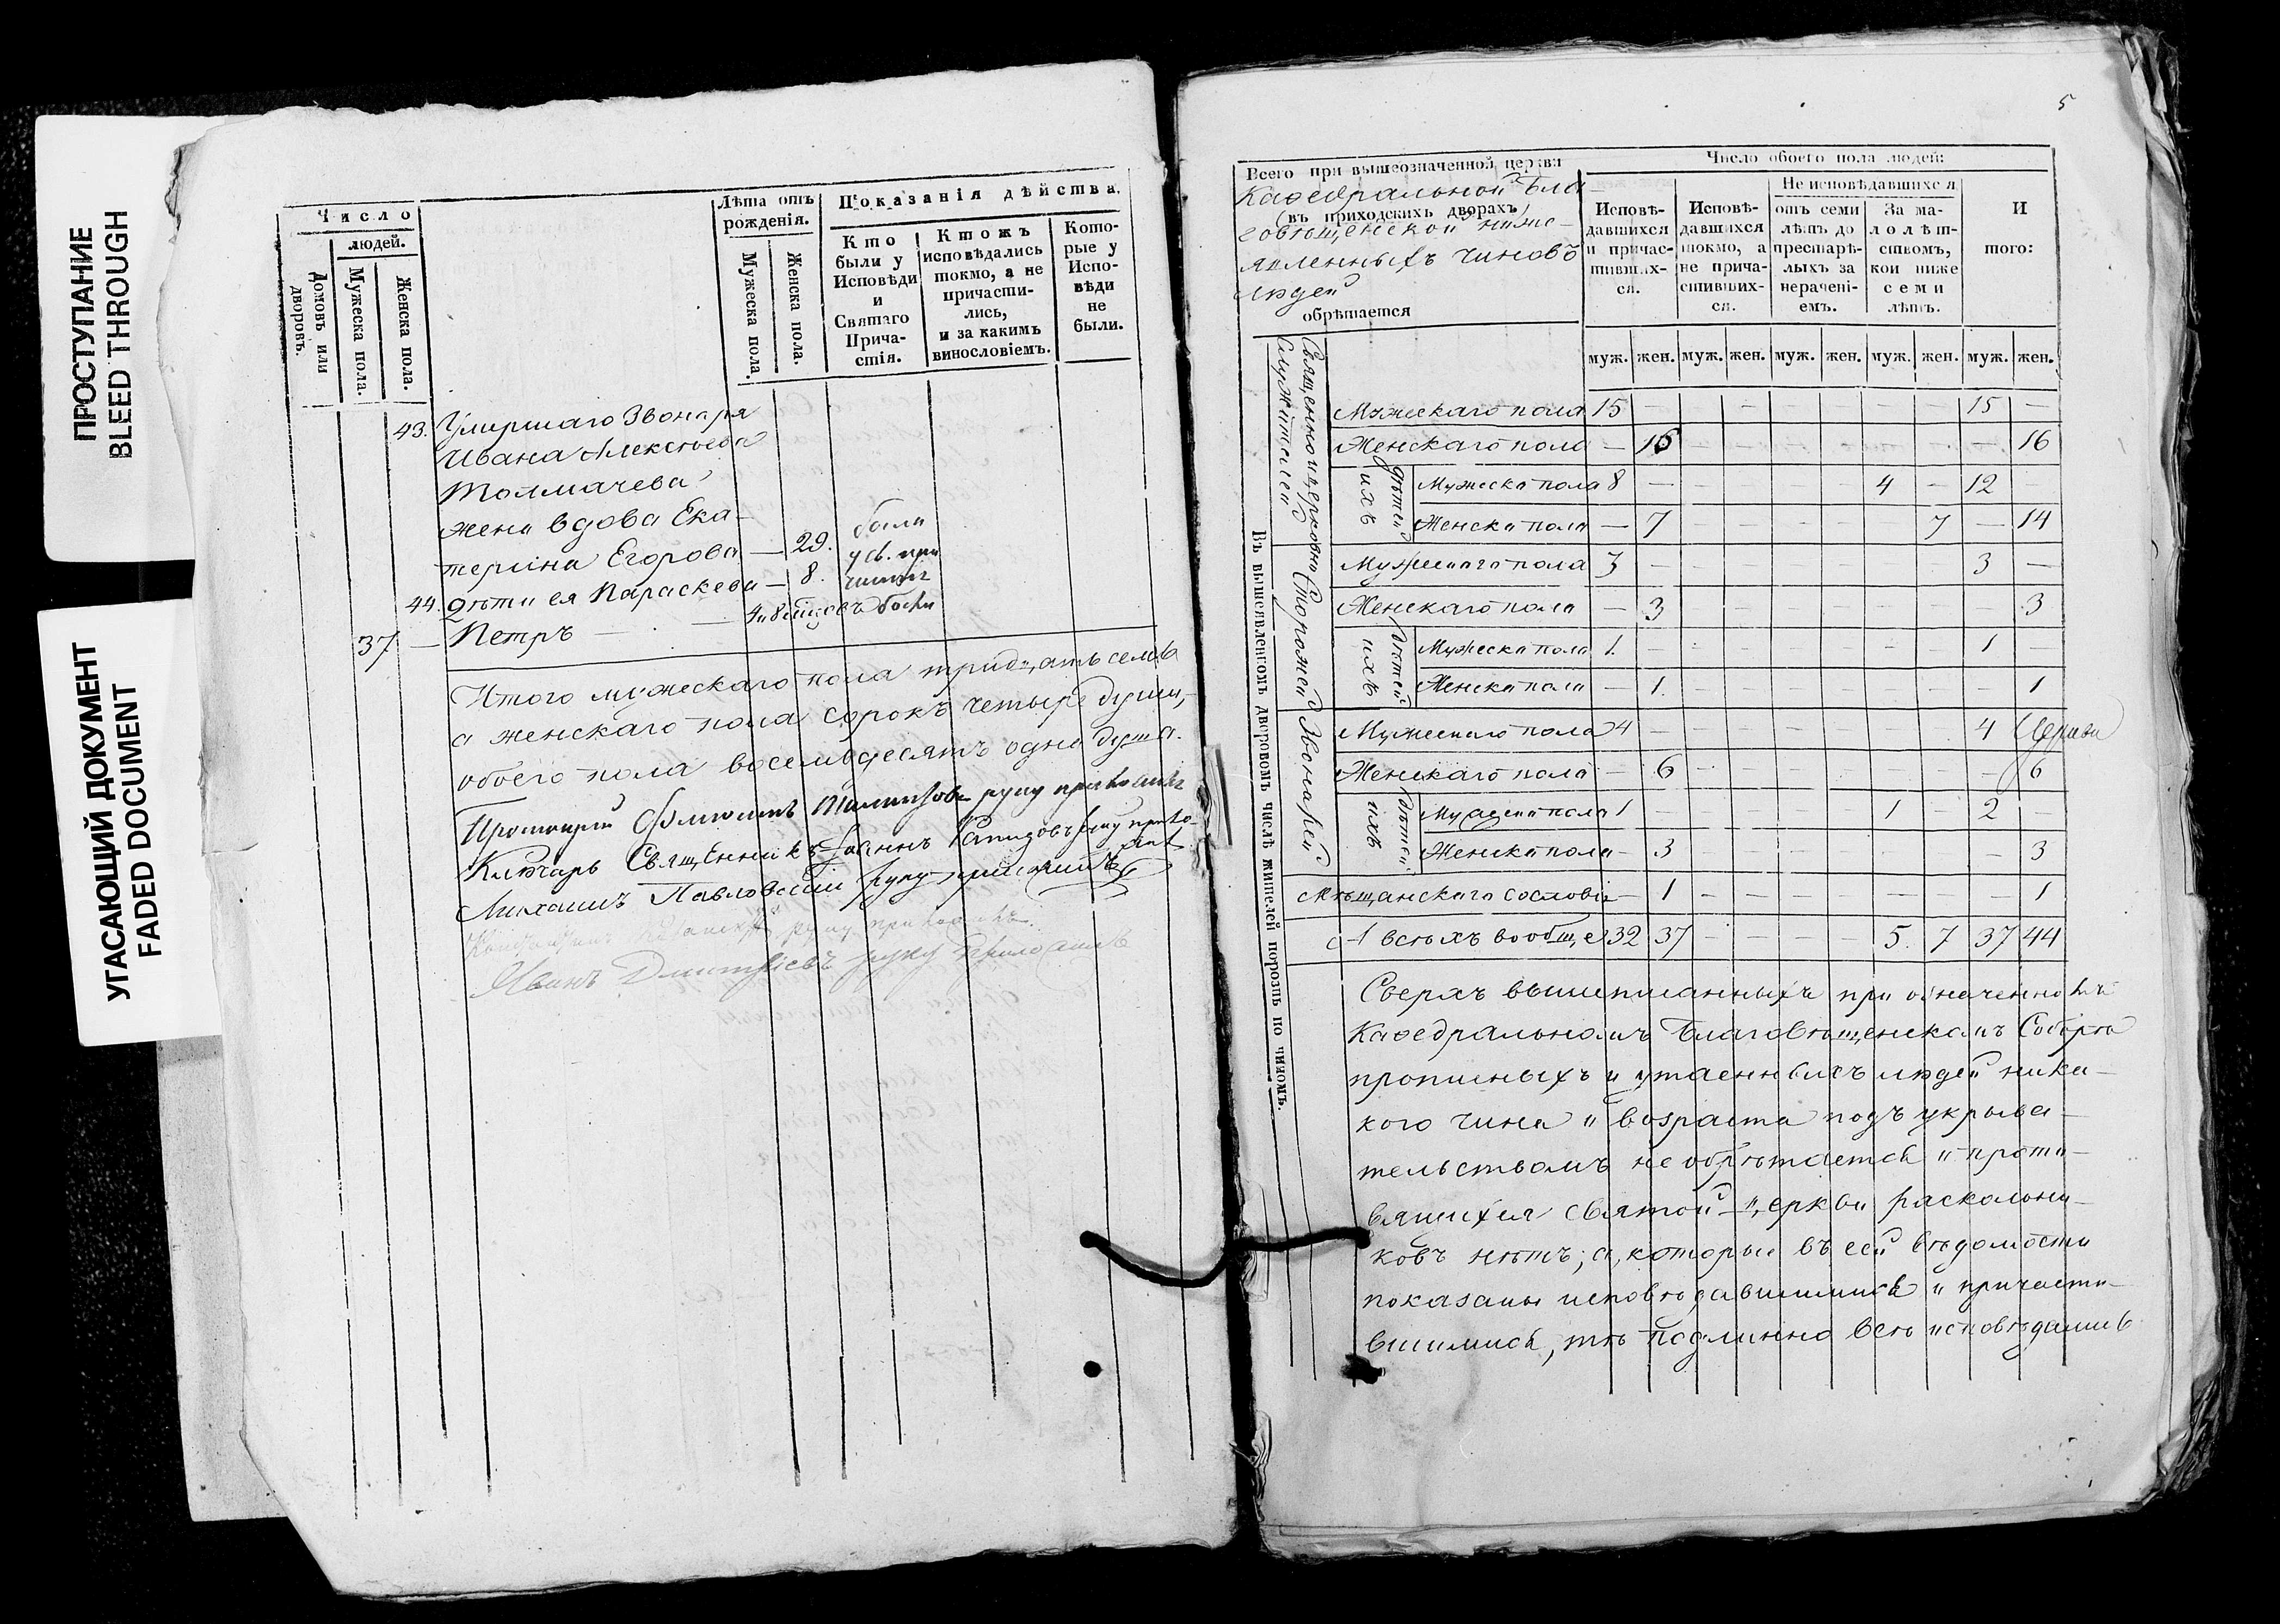 ПРОСТУПАНИЕ
BLEED THROUGH
УГАСАЮЩИЙ ДОКУМЕНТ
FADED DOCUMENT
Число
людей.
Домовъ или дворовъ.
Мужеска пола.
Женска пола.
Лѣта отъ рожденія.
Мужеска пола.
Женска пола.
Показанія дѣйства.
Кто были у Исповѣди и Святаго Прича- стія.
Ктожъ исповѣдались токмо, а не причасти- лись, и за какимъ винословіемъ.
Кото- рые у Испо- вѣди не были.
43. Умершаго Звонаря
Ивана Алексѣева
Толмачева
жена вдова Ека-
терина Егорова — 29. были
44. дѣти ея Параскева — 8. у св. при
37 — Петръ —
Итого мужескаго пола тридцать семь
а женскаго пола сорокъ четыре души,
обоего пола восемьдесятъ одна душа.
Протоіерей руку приложилъ
Ключарь Священникъ Іоаннъ руку прило-
Михаилъ Павловскій руку приложилъ
руку приложилъ
Иванъ Дмитріевъ руку приложилъ
5
Всего при вышеозначенной церкви
Каѳедральной Бла-
(въ приходскихъ дворахъ)
говѣщенской ниже-
явленныхъ чиновъ
людей
обрѣтается
Число обоего пола людей:
Исповѣ- давшихся и причас- тивших- ся.
Исповѣ- давшихся токмо, а не прича- стивших- ся.
Не исповѣдавшихся
отъ семи лѣтъ до престарѣ- лыхъ за нерачені- емъ.
За ма- лолѣт- ствомъ, кои ниже семи лѣтъ.
И того:
муж. жен. муж. жен. муж. жен. муж. жен. муж. жен.
Въ вышеявленномъ дворовомъ числѣ жителей порознь по чиномъ.
Священно и церковно
служителей
Мужескаго пола 15 — — — — 15 —
Женскаго пола — 16 — — — — 16
дѣтей ихъ
Мужеска пола 8 — — — — 4 — 12 —
Женска пола — 7 — — — — 7 — 14
Сторожей
Мужескаго пола 3 — — — — 3 —
Женскаго пола — 3 — — — — 3
дѣтей ихъ
Мужеска пола 1. — — — — 1 —
Женска пола — 1. — — — — 1
Звонарей
Мужескаго пола 4 — — — — 4
Женскаго пола — 6 — — — — 6
дѣтей ихъ
Мужеска пола 1 — — — 1 — 2 —
Женска пола — 3 — — — — 3
Мѣщанскаго сословія — 1 — — — — 1
А всѣхъ вообще 32 37 — — — — 5. 7 37 44
Сверхъ вышеписанныхъ при означенномъ
Каѳедральномъ Благовѣщенскомъ Соборѣ
прописныхъ и утаенныхъ людей ника-
кого чина и возраста подъ укрыва-
тельствомъ не обрѣтается и проти-
вящихся святой церкви раскольни-
ковъ нѣтъ; а которые въ сей вѣдомости
показаны исповѣдавшимися и причасти-
вшимися, тѣ подлинно всѣ исповѣдались